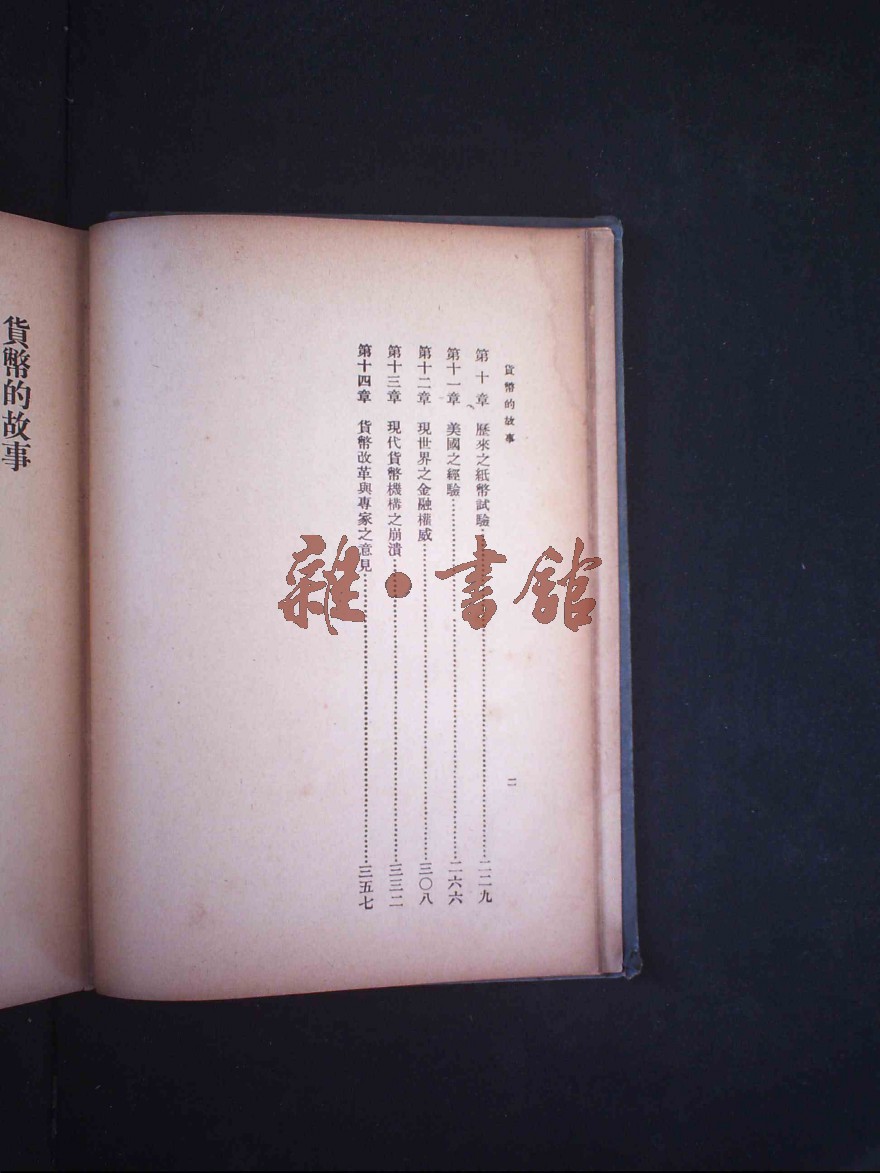 貨幣的故事
第十章 歷來之紙幣試驗……二二九
第十一章 美國之經驗……二六六
第十二章 現世界之金融權威……三〇八
第十三章 現代貨幣機構之崩潰……三三二
第十四章 貨幣改革與專家之意見……三五七
二
貨幣的故事
雜·書館